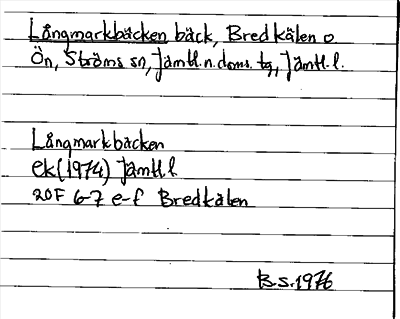 Långmarkbäcken bäck, Bredkälen o.
Ön, Ströms sn, Jämtl. n. doms. tg, Jämtl. l.
Långmarkbäcken
ek (1974) Jämtl. l
20F 6-7 e-f Bredkälen
B.S. 1976